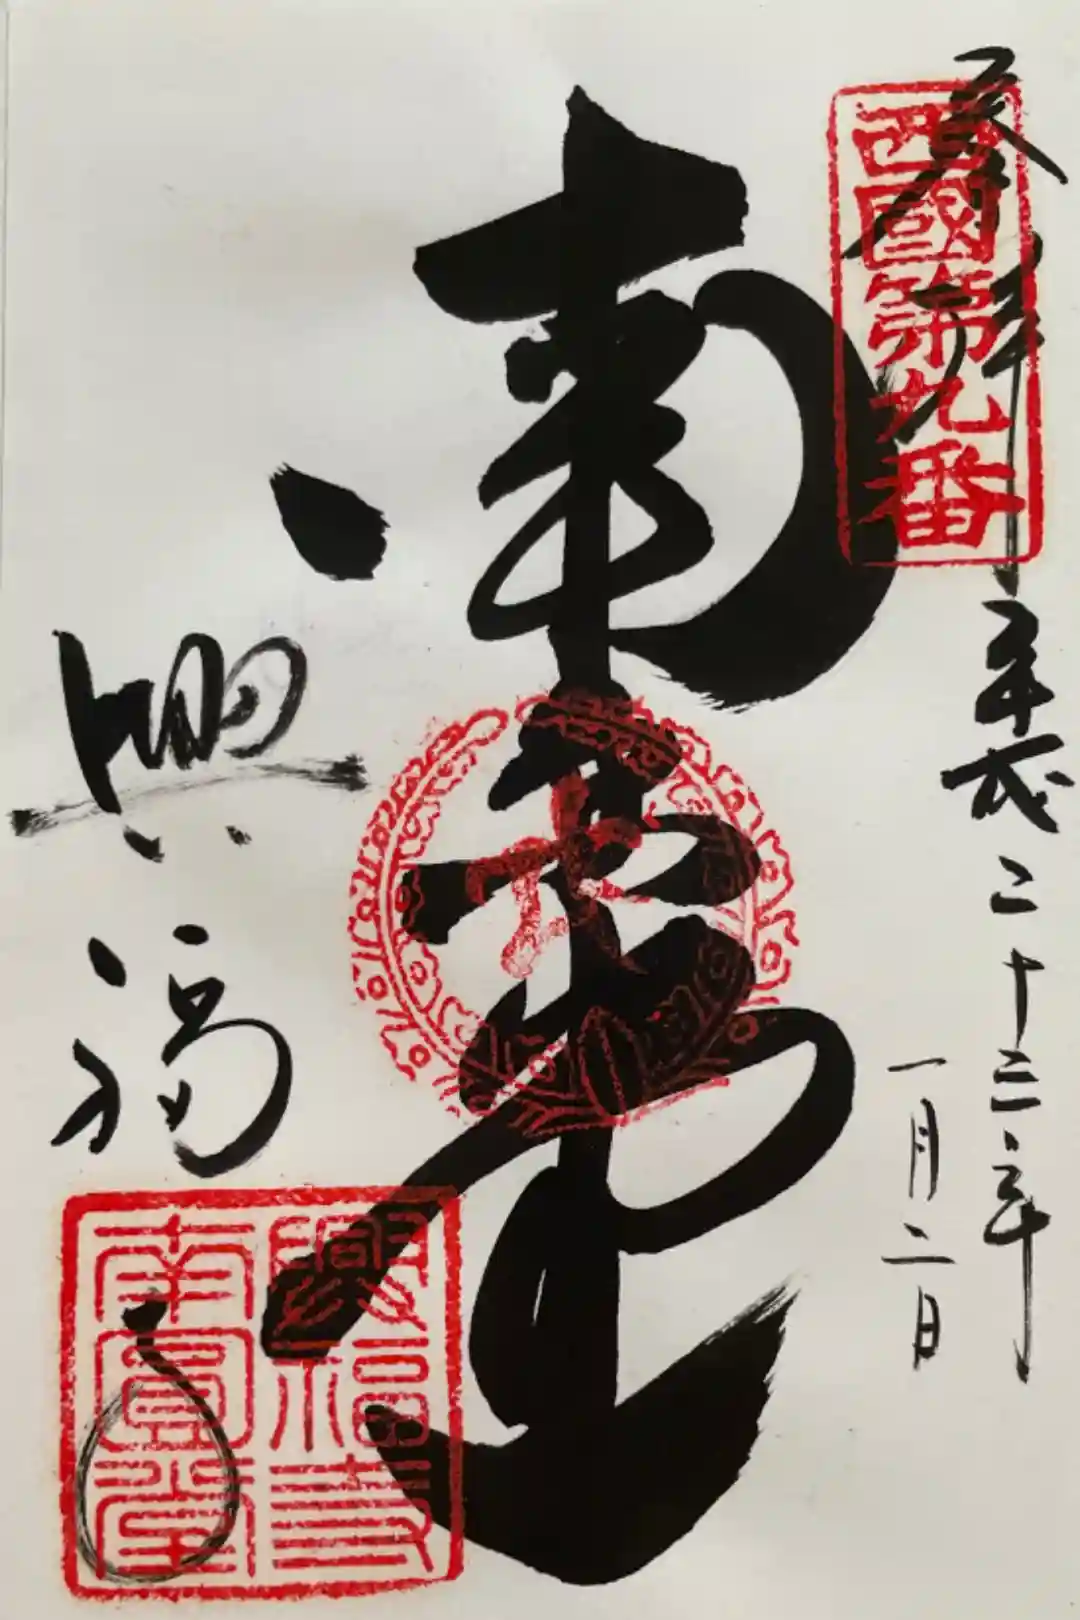 奉拝
西國第九番
平成二十三年
一月二日
南圓堂
興福寺
興福寺
南圓堂